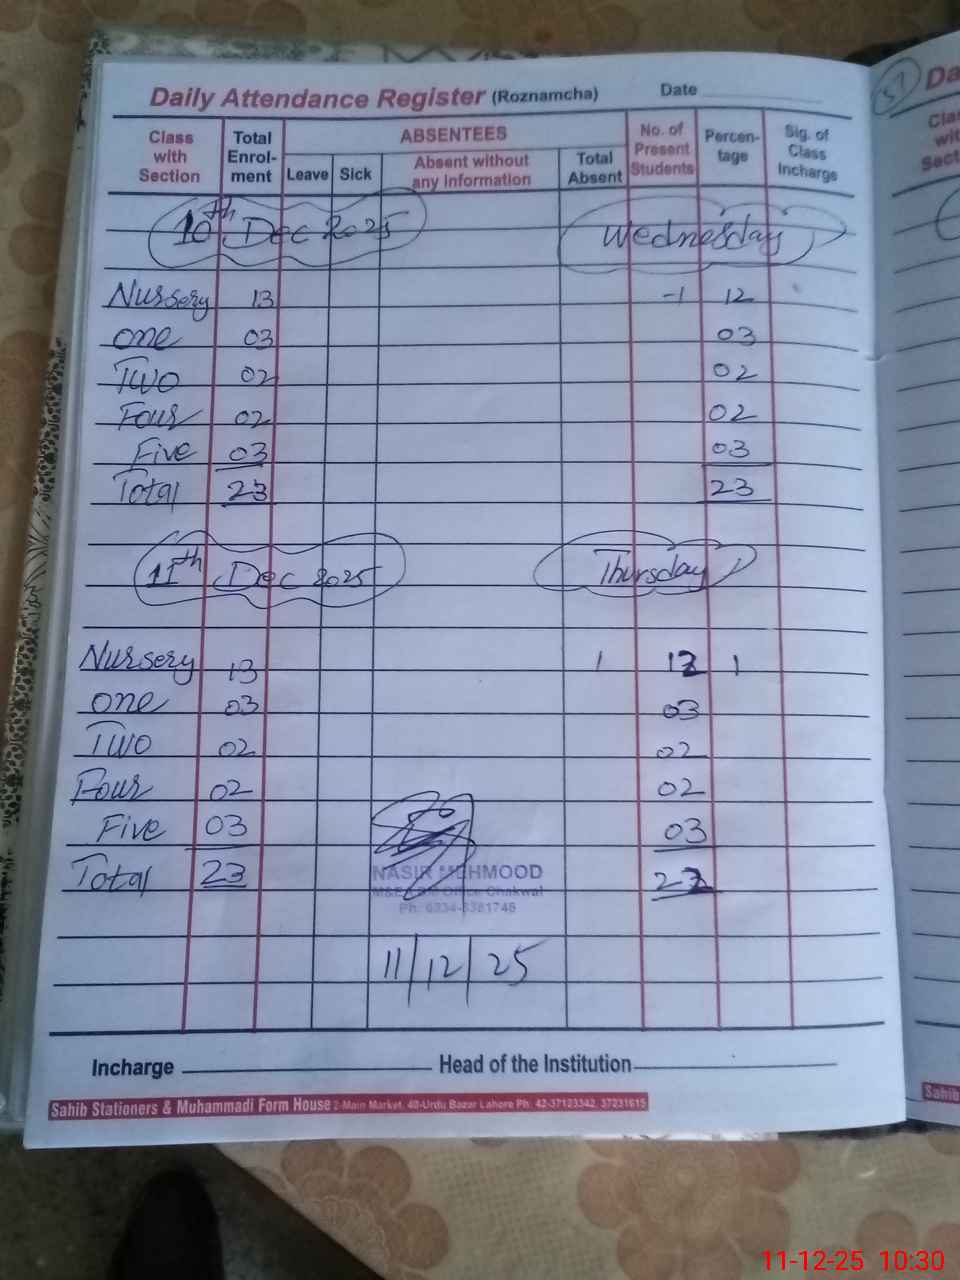 Daily Attendance Register (Roznamcha) Date
Class with Section Total Enrol-ment ABSENTEES No. of Present Students Percen-tage Sig. of Class Incharge
Leave Sick Absent without any Information Total Absent
10th Dec 2025 Wednesday
Nursery 13 -1 12
one 03 03
Two 02 02
Four 02 02
Five 03 03
Total 23 23
11th Dec 2025 Thursday
Nursery 13 1 12 1
one 03 03
Two 02 02
Four 02 02
Five 03 03
Total 23 22
NASIR MEHMOOD
Office Chakwal
11/12/25
Incharge Head of the Institution
Sahib Stationers & Muhammadi Form House 2-Main Market, 40-Urdu Bazar Lahore Ph. 42-37123342, 37231615
57
Da
Cla
wit
Sect
Sahib
11-12-25 10:30